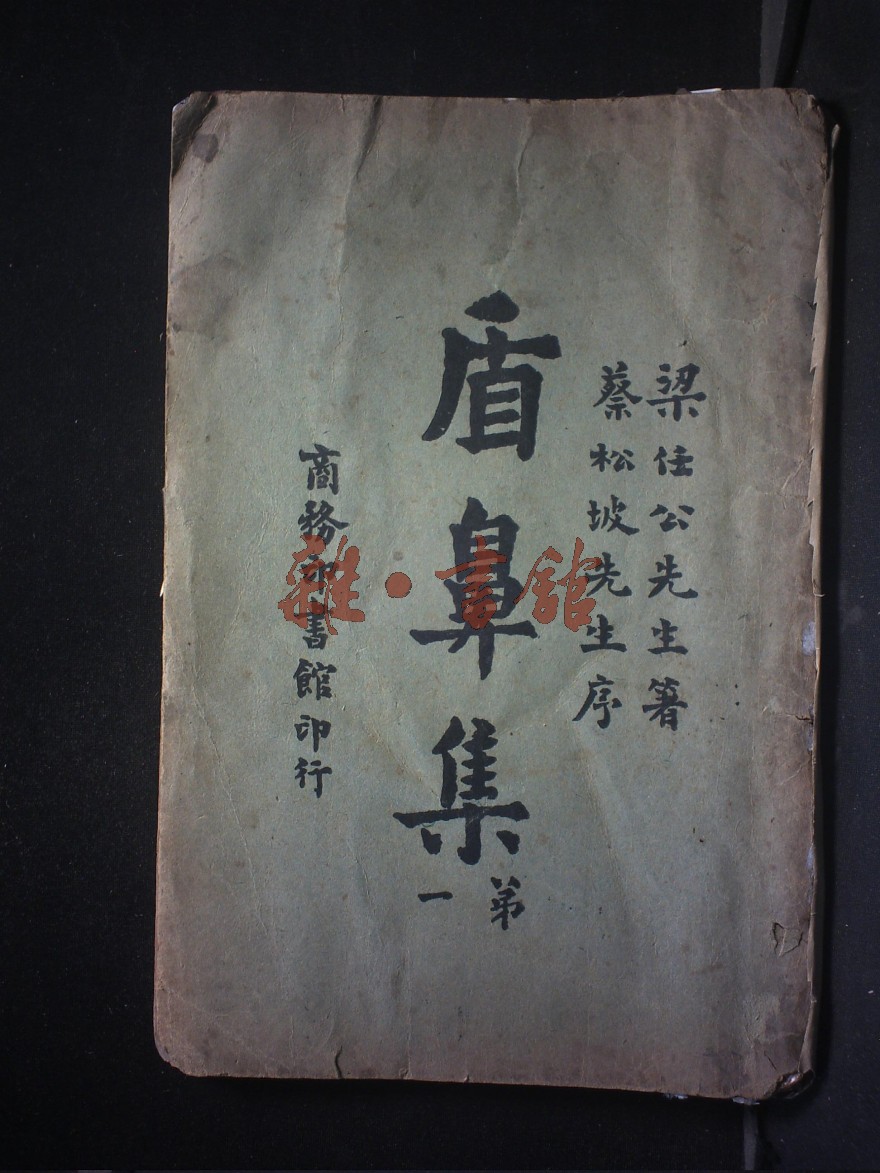 梁任公先生箸
蔡松坡先生序
盾鼻集
弟一
商務印書館印行
雜·書館